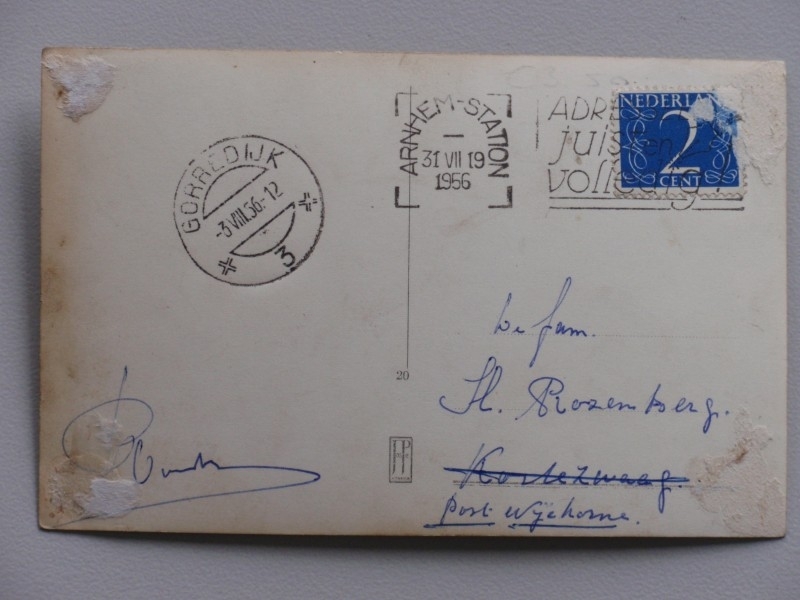 GORREDIJK
-3 VIII.56.-12
3
ARNHEM-STATION
31 VII 19
1956
ADR
juist en
volledig!
NEDERLAN
2
CENT
de fam.
H. Rozenberg.
Kortezwaag.
post Wijchorne.
20